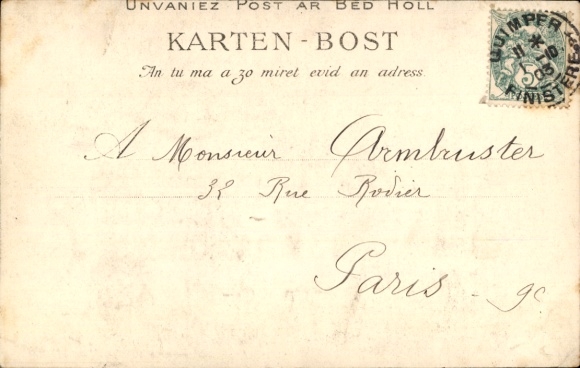 UNVANIEZ POST AR BED HOLL
KARTEN-BOST
An tu ma a zo miret evid an adress.
QUIMPER
FINISTERE
5
A Monsieur Armbruster
32 Rue Rodier
Paris - 9e